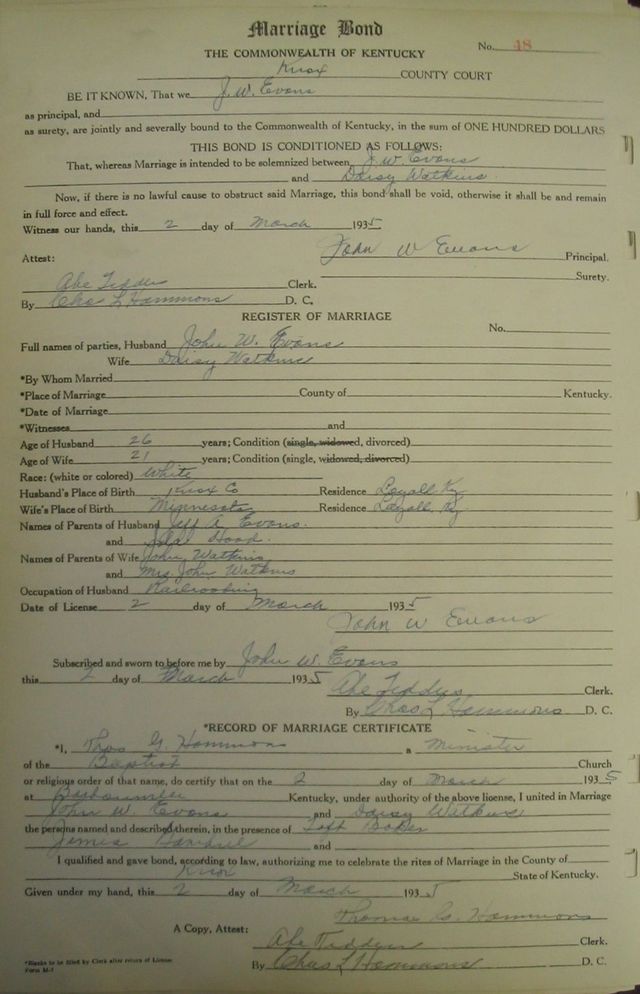 Marriage Bond
No. 48
THE COMMONWEALTH OF KENTUCKY
Knox COUNTY COURT
BE IT KNOWN, That we J. W. Evans
as principal, and
as surety, are jointly and severally bound to the Commonwealth of Kentucky, in the sum of ONE HUNDRED DOLLARS
THIS BOND IS CONDITIONED AS FOLLOWS:
That, whereas Marriage is intended to be solemnized between J. W. Evans
and Daisy Watkins.
Now, if there is no lawful cause to obstruct said Marriage, this bond shall be void, otherwise it shall be and remain
in full force and effect.
Witness our hands, this 2 day of March 1935
John W Evans Principal.
Attest:
Surety.
Abe Tedder Clerk.
By Chas L Hammons D. C.
REGISTER OF MARRIAGE
No.
Full names of parties, Husband John W. Evans
Wife Daisy Watkins
*By Whom Married
*Place of Marriage County of Kentucky.
*Date of Marriage
*Witnesses and
Age of Husband 26 years; Condition (single, widowed, divorced)
Age of Wife 21 years; Condition (single, widowed, divorced)
Race: (white or colored) White
Husband's Place of Birth Knox Co Residence Loyall Ky
Wife's Place of Birth Minnesota Residence Loyall Ky
Names of Parents of Husband Jeff A. Evans.
and Hood.
Names of Parents of Wife John Watkins
and Mrs John Watkins
Occupation of Husband Railroading
Date of License 2 day of March 1935
John W Evans
Subscribed and sworn to before me by John W. Evans
this 2 day of March 1935
Abe Tedder Clerk.
By Chas L Hammons D. C.
*RECORD OF MARRIAGE CERTIFICATE
*I, Thos G Hammons a Minister
of the Baptist Church
or religious order of that name, do certify that on the 2 day of March 1935
at Barbourville Kentucky, under authority of the above license, I united in Marriage
John W. Evans and Daisy Watkins
the persons named and described therein, in the presence of Baker
James and
I qualified and gave bond, according to law, authorizing me to celebrate the rites of Marriage in the County of
Knox State of Kentucky.
Given under my hand, this 2 day of March 1935
Thomas G. Hammons
A Copy, Attest:
Abe Tedder Clerk.
*Blanks to be filled by Clerk after return of License
Form M-1
By Chas L Hammons D. C.